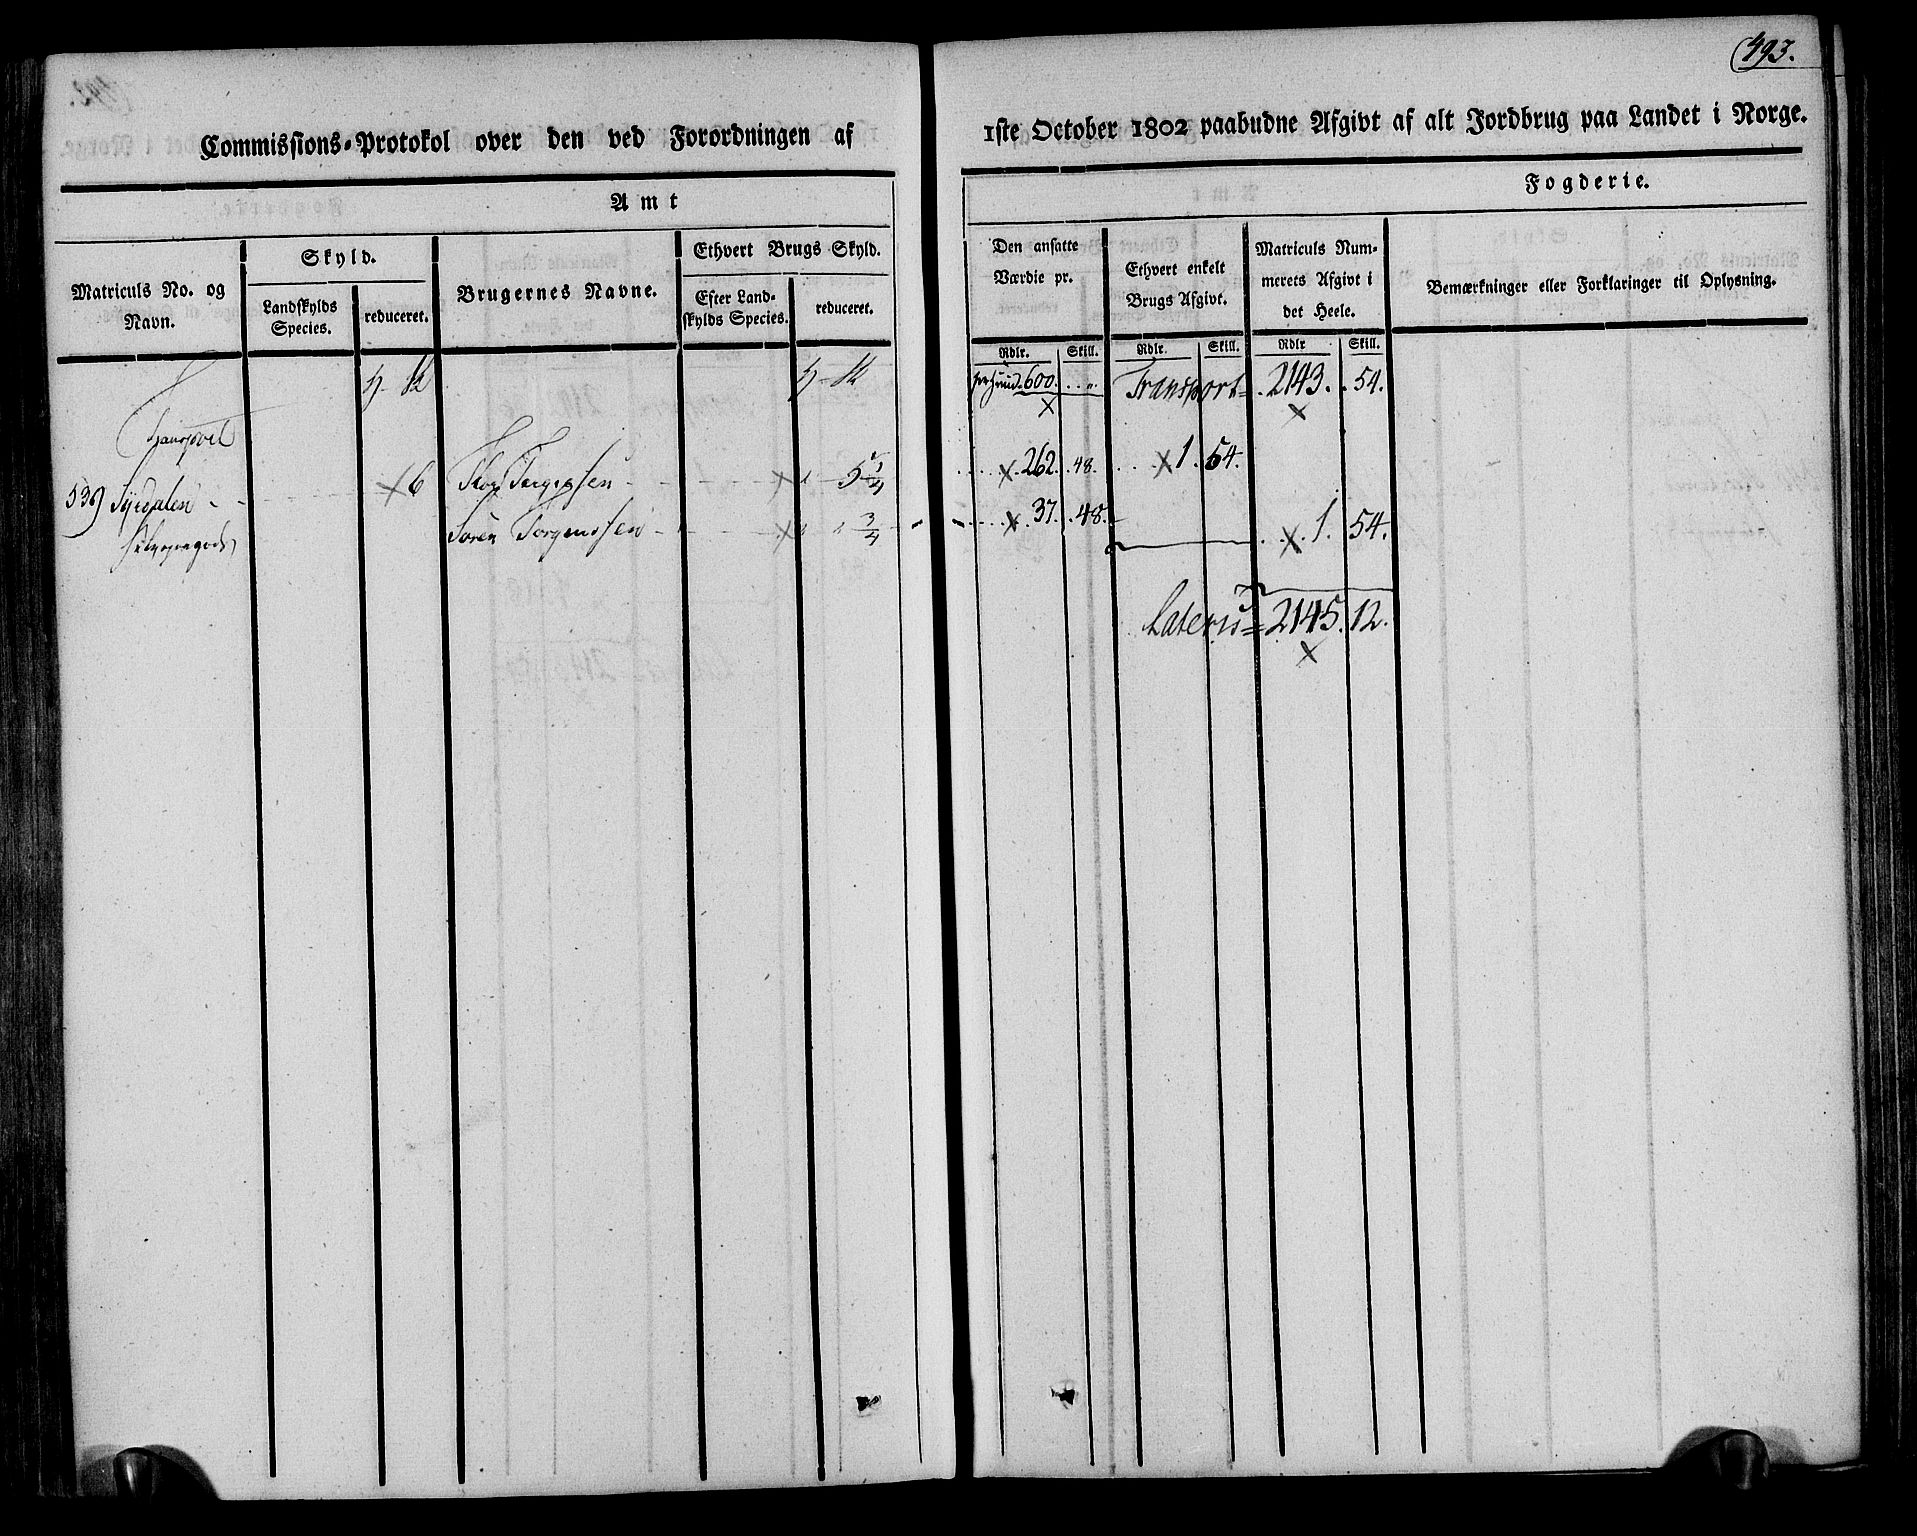 493.
Commissions-Protokol over den ved Forordningen af 1ste October 1802 paabudne Afgivt af alt Jordbrug paa Landet i Norge.
Amt
Fogderie.
Matriculs No. og Navn.
Skyld.
Landskylds Species.
reduceret.
Brugernes Navne.
Ethvert Brugs Skyld.
Efter Landskylds Species.
reduceret.
Den ansatte Værdie pr.
Rdlr. Skill.
Ethvert enkelt Brugs Afgivt.
Rdlr. Skill.
Matriculs Nummerets Afgivt i det Heele.
Rdlr Skill.
Bemærkninger eller Forklaringer til Oplysning.
600. Transport 2143. 54.
6 5 1/4 262. 48. 1. 54.
Soren 3/4 37. 48. 1. 54.
Lateris 2145. 12.